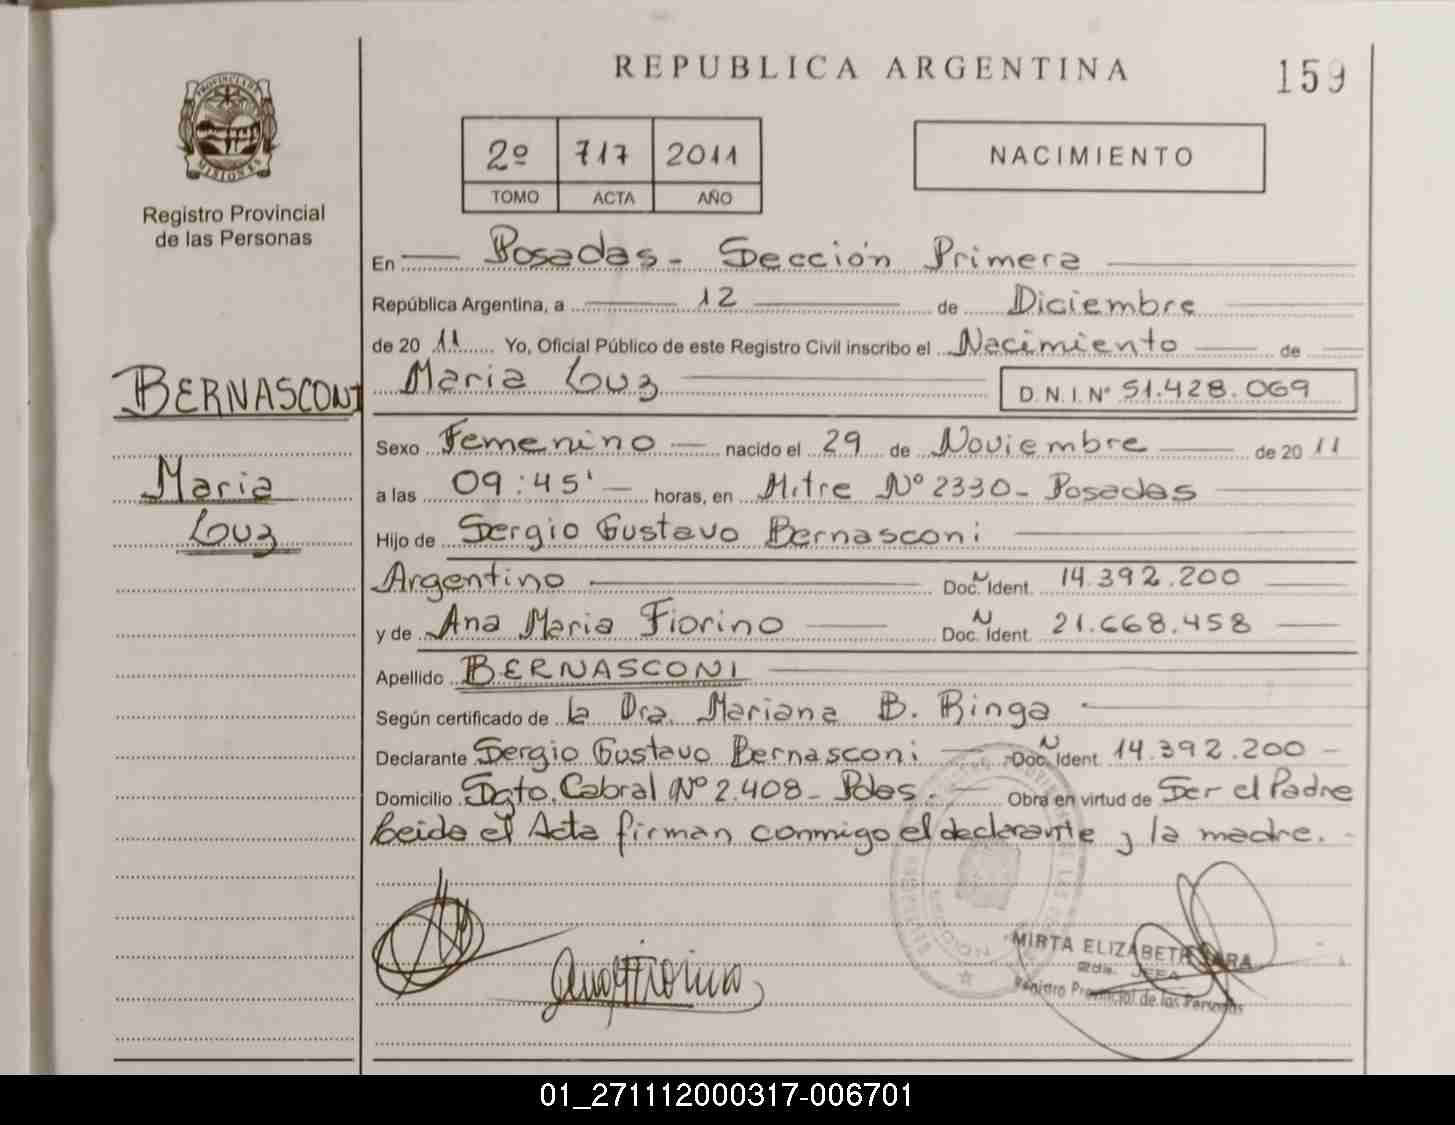 REPUBLICA ARGENTINA
159
PROVINCIA DE MISIONES
Registro Provincial
de las Personas
2º 717 2011
TOMO ACTA AÑO
NACIMIENTO
En Posadas - Sección Primera
República Argentina, a 12 de Diciembre
de 20 11 Yo, Oficial Público de este Registro Civil inscribo el Nacimiento de
Maria Luz D.N.I. Nº 51.428.069
BERNASCONI
Maria
Luz
Sexo Femenino nacido el 29 de Noviembre de 20 11
a las 09:45' horas, en Mitre Nº 2330 - Posadas
Hijo de Sergio Gustavo Bernasconi
Argentino Doc. N Ident. 14.392.200
y de Ana Maria Fiorino Doc. N Ident. 21.668.458
Apellido BERNASCONI
Según certificado de la Dra. Mariana B. Ringa
Declarante Sergio Gustavo Bernasconi Doc. N Ident. 14.392.200
Domicilio Sgto. Cabral Nº 2.408 - Pdas. Obra en virtud de Ser el Padre
Leida el Acta firman conmigo el declarante y la madre.
MIRTA ELIZABETH
JEFA
Registro Provincial de las Personas
01_271112000317-006701